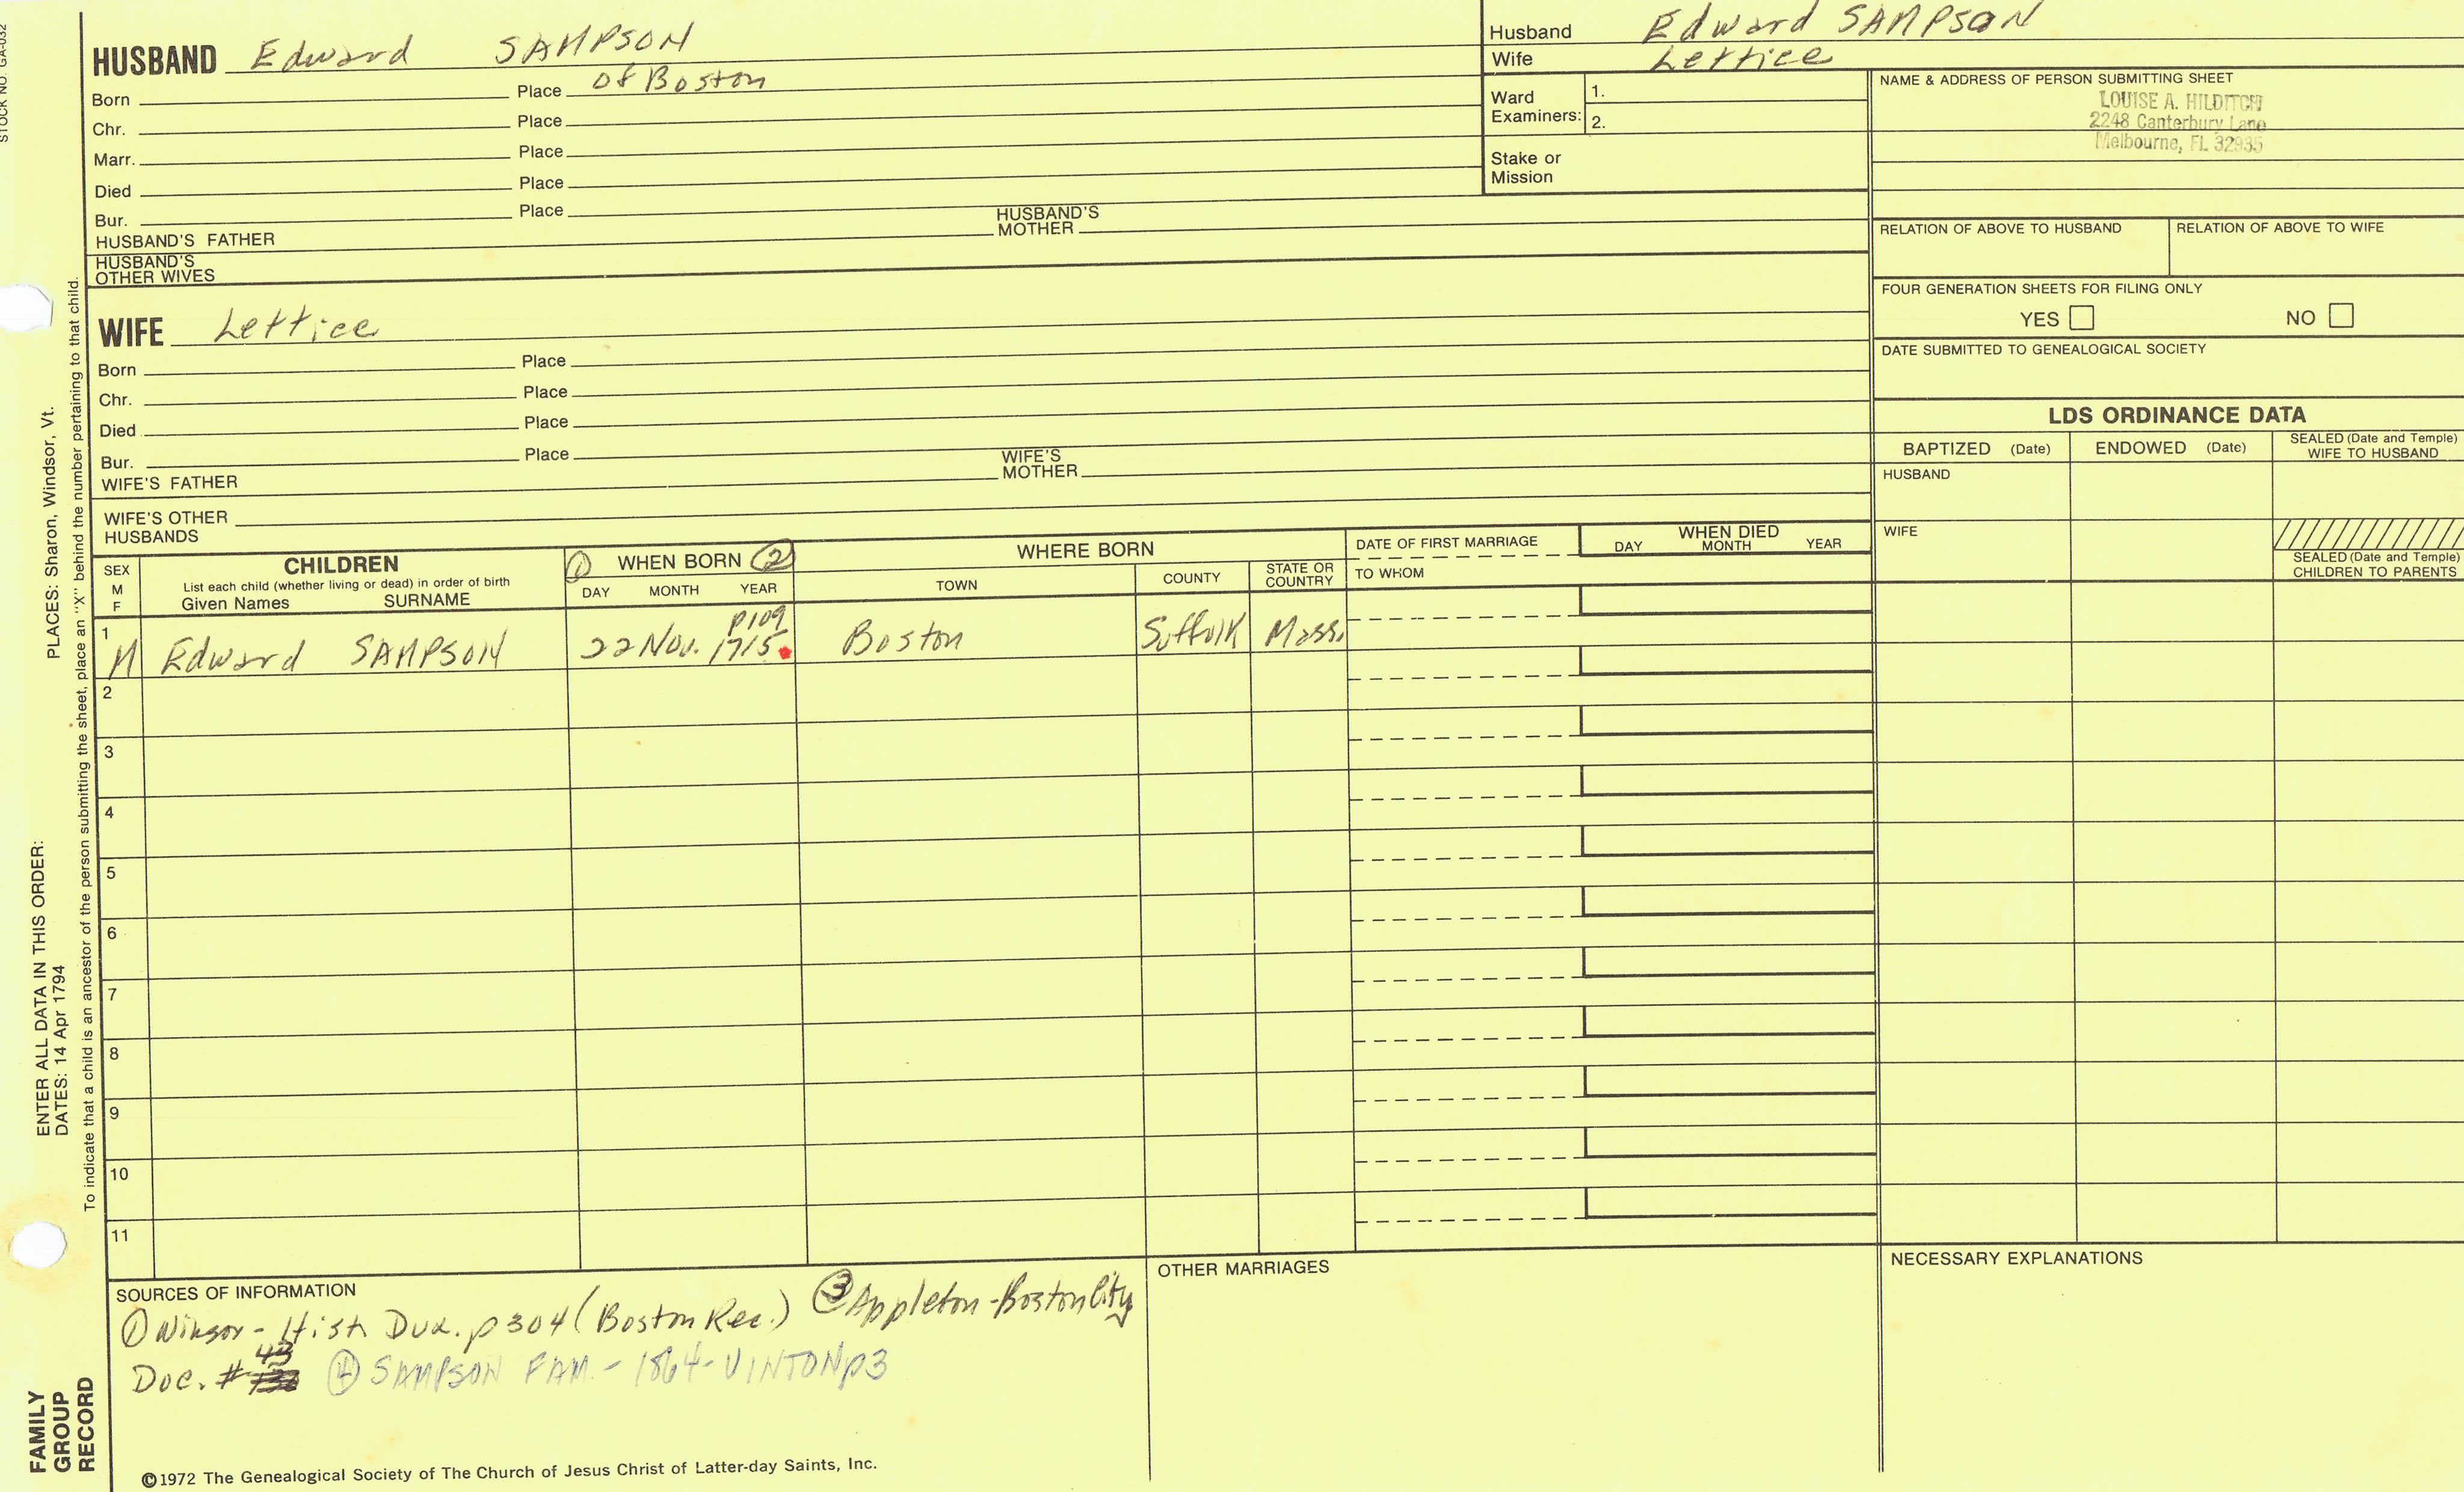 STOCK NO. GA-032
PLACES: Sharon, Windsor, Vt.
ENTER ALL DATA IN THIS ORDER:
DATES: 14 Apr 1794
To indicate that a child is an ancestor of the person submitting the sheet, place an "X" behind the number pertaining to that child.
FAMILY
GROUP
RECORD
HUSBAND Edward SAMPSON
Born Place of Boston
Chr. Place
Marr. Place
Died Place
Bur. Place
HUSBAND'S FATHER HUSBAND'S MOTHER
HUSBAND'S OTHER WIVES
WIFE Lettice
Born Place
Chr. Place
Died Place
Bur. Place
WIFE'S FATHER WIFE'S MOTHER
WIFE'S OTHER HUSBANDS
Husband Edward SAMPSON
Wife Lettice
Ward Examiners: 1.
2.
Stake or Mission
NAME & ADDRESS OF PERSON SUBMITTING SHEET
LOUISE A. HILDITCH
2248 Canterbury Lane
Melbourne, FL 32935
RELATION OF ABOVE TO HUSBAND RELATION OF ABOVE TO WIFE
FOUR GENERATION SHEETS FOR FILING ONLY
YES NO
DATE SUBMITTED TO GENEALOGICAL SOCIETY
LDS ORDINANCE DATA
BAPTIZED (Date) ENDOWED (Date) SEALED (Date and Temple) WIFE TO HUSBAND
HUSBAND
WIFE
SEALED (Date and Temple) CHILDREN TO PARENTS
SEX M F
CHILDREN
List each child (whether living or dead) in order of birth
Given Names SURNAME
① WHEN BORN ②
DAY MONTH YEAR
WHERE BORN
TOWN COUNTY STATE OR COUNTRY
DATE OF FIRST MARRIAGE
TO WHOM
WHEN DIED
DAY MONTH YEAR
p109
1 M Edward SAMPSON 22 Nov. 1715 Boston Suffolk Mass.
2
3
4
5
6
7
8
9
10
11
SOURCES OF INFORMATION
① Winsor - Hist. Dux. p 304 (Boston Rec.) ③ Appleton - Boston City
Doc. # 43 ④ SAMPSON FAM. - 1864 - VINTON p3
OTHER MARRIAGES
NECESSARY EXPLANATIONS
©1972 The Genealogical Society of The Church of Jesus Christ of Latter-day Saints, Inc.